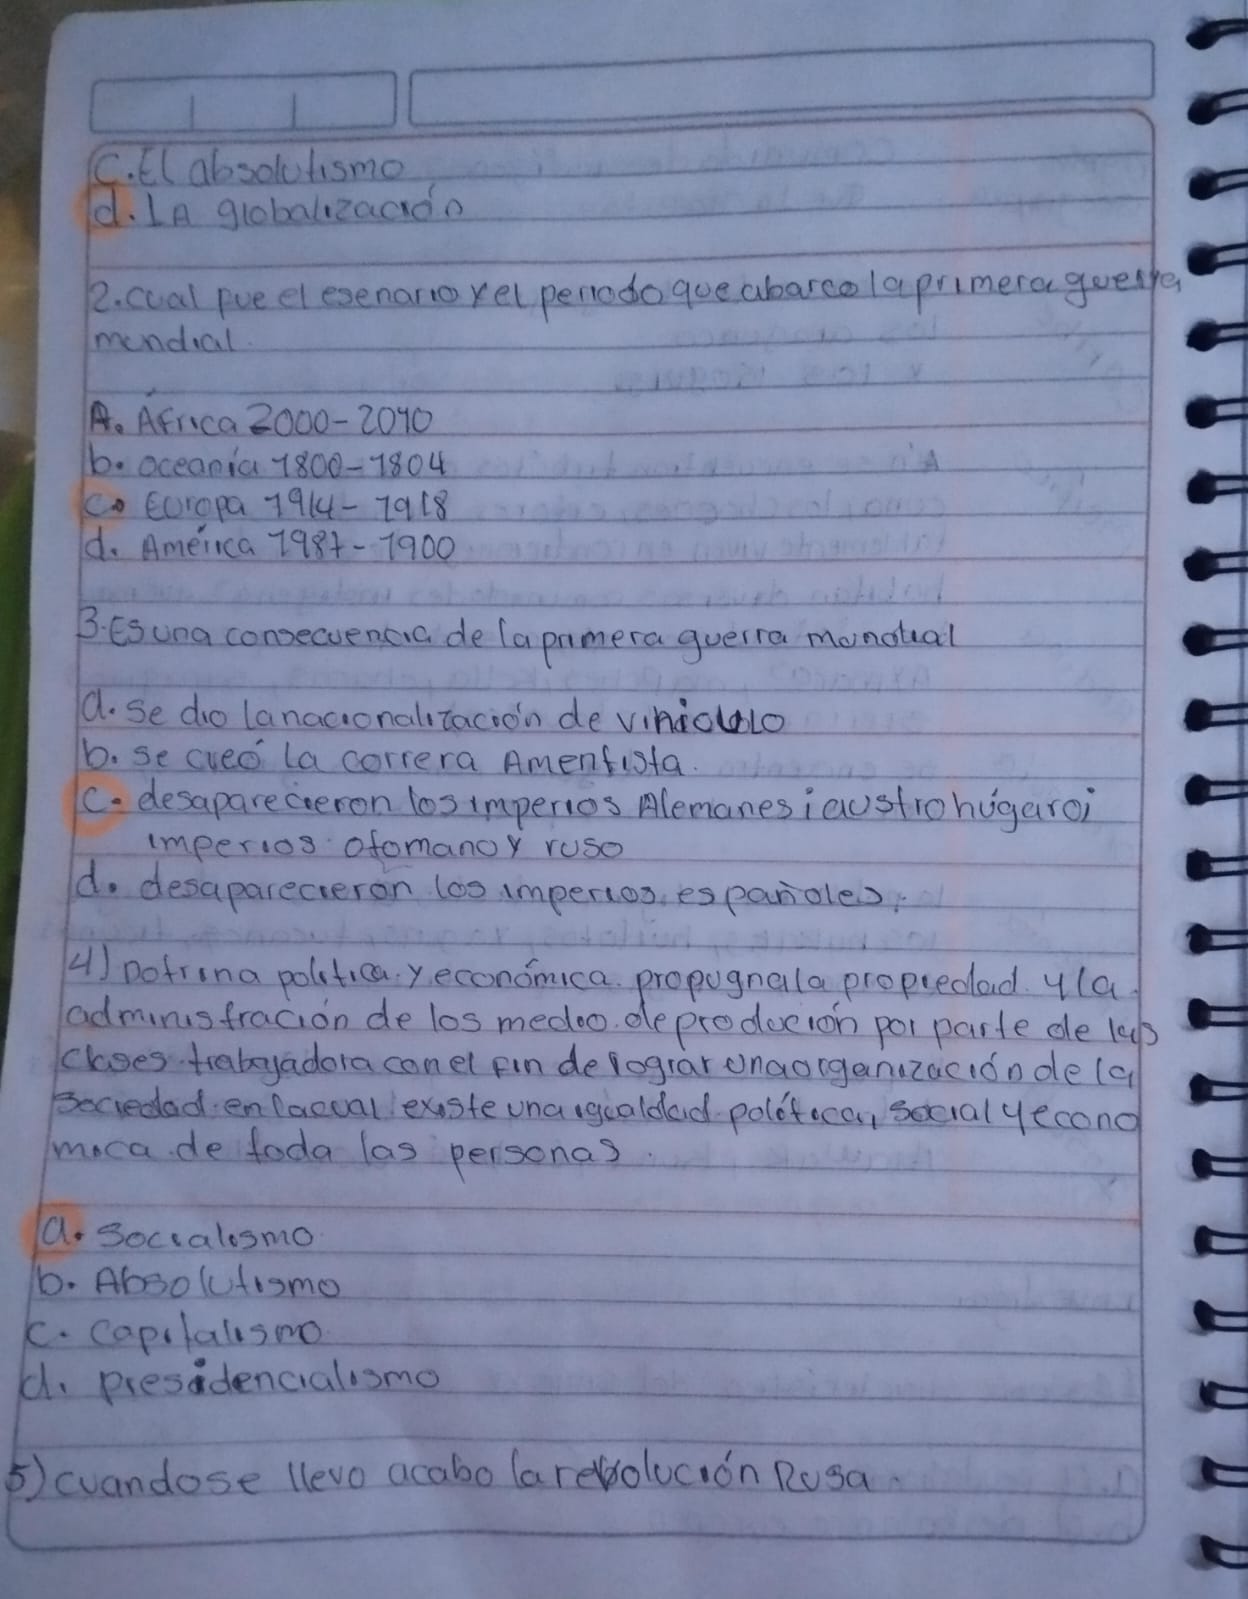 C. El absolutismo
d. LA globalización
2. cual fue el esenario y el periodo que abarco la primera guerra
mundial.
A. África 2000-2010
b. oceanía 1800-1804
c. Europa 1914-1918
d. América 1987-1900
3. Es una consecuencia de la primera guerra mundial
a. se dio la nacionalización de
b. se creó la correra Amentista.
c. desaparecieron los imperios Alemanes; austrohúgaro;
imperios otomano y ruso
d. desaparecieron los imperios españoles.
4) Dotrina política y económica propugnala propiedad y la
administración de los medio de produción por parte de las
clases trabajadora con el fin de lograr una organización de la
sociedad en la cual existe una igualdad política, social y econo
mica de toda las personas.
a. socialismo
b. Absolutismo
c. capitalismo
d. presidencialismo
5) cuando se llevo acabo la revolución Rusa.